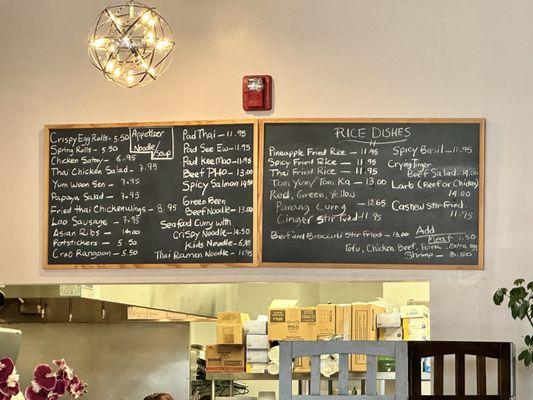 Crispy Egg Rolls - 5.50
Spring Rolls - 5.50
Chicken Satay - 6.95
Thai Chicken Salad - 7.95
Yum Woon Sen - 7.95
Papaya Salad - 7.95
Fried thai Chicken wings - 8.95
Lao Sausage - 7.95
Asian Ribs - 14.00
Potstickers - 5.50
Crab Rangoon - 5.50
Appetizer
Noodle/Soup
Pad Thai - 11.95
Pad See Ew - 11.95
Pad Kee Mao - 11.95
Beef Pho - 13.00
Spicy Salmon 14.95
Green Bean
Beef Noodle - 13.00
Seafood Curry with
Crispy Noodle - 14.50
Kids Noodle - 6.95
Thai Ramen Noodle - 11.95
RICE DISHES
Pineapple Fried Rice - 11.95
Spicy Fried Rice - 11.95
Thai Fried Rice - 11.95
Tom Yum / Tom Ka - 13.00
Red, Green, Yellow
Panang Curry - 12.65
Ginger Stir Fried - 11.95
Beef and Broccoli Stir Fried - 13.00
Spicy Basil - 11.95
Crying Tiger
Beef Salad 14.00
Larb (Beef or Chicken)
14.00
Cashew Stir fried
11.95
Add
Meat 1.50
Tofu, Chicken, beef, Pork, Extra egg
Shrimp - 3.00